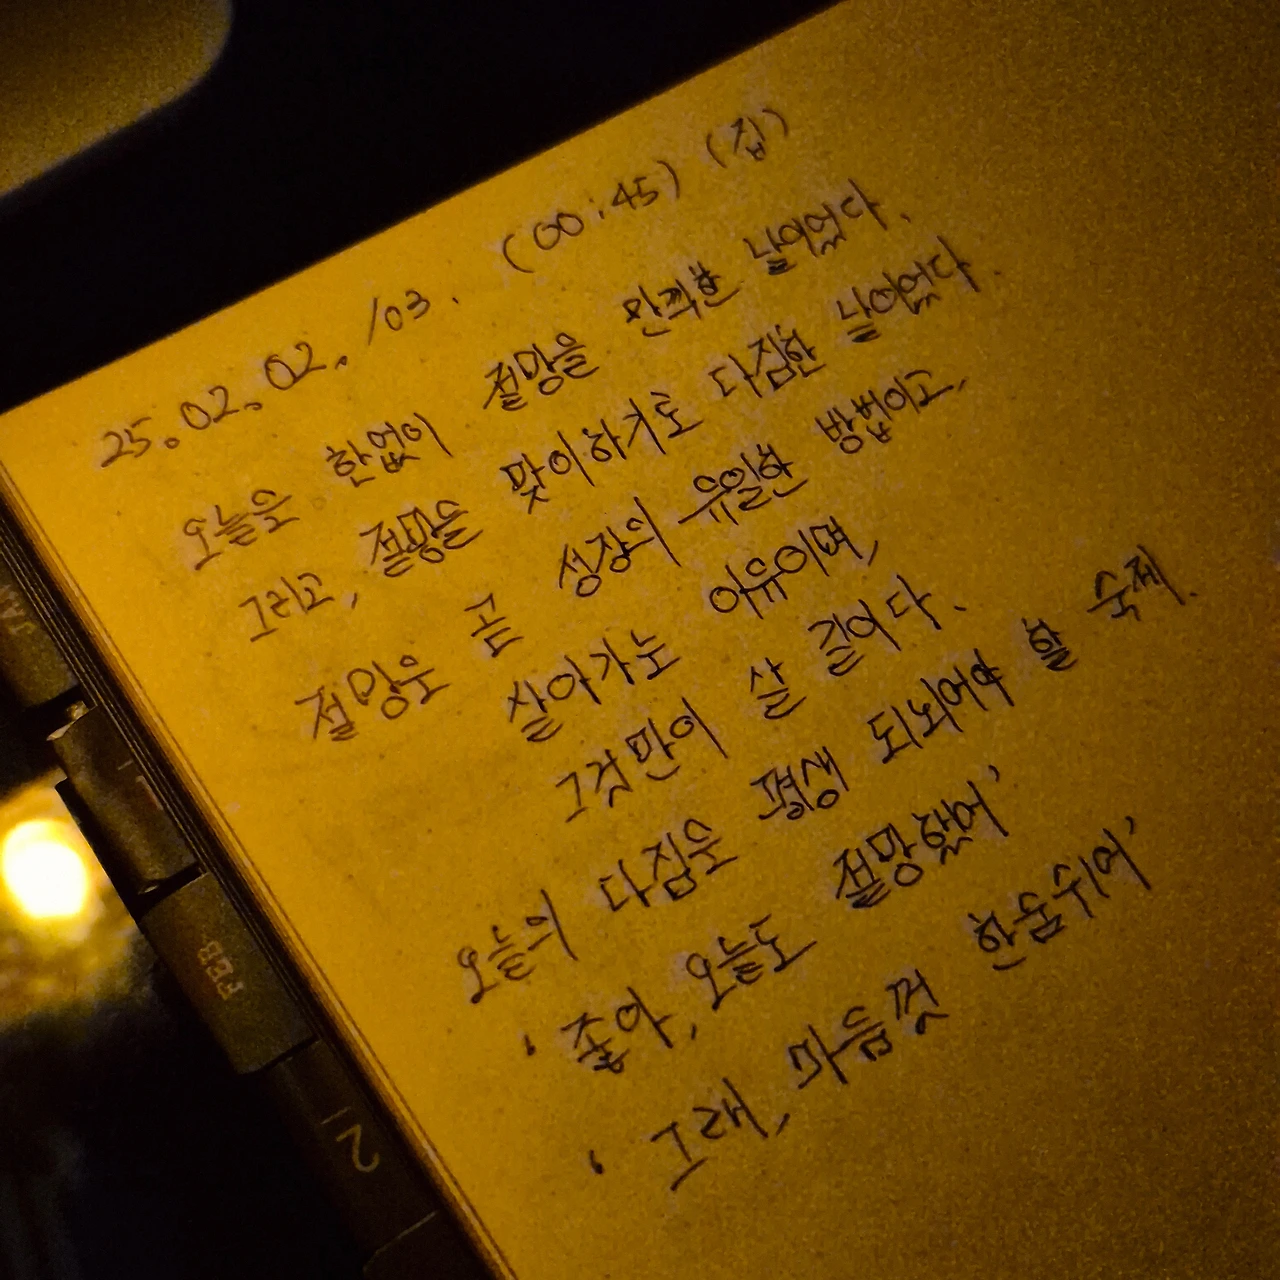 25.02.02./03. (00:45) (집)
오늘은 한없이 절망을 만끽한 날이었다.
그리고, 절망을 맞이하기로 다짐한 날이었다.
절망은 곧 성장의 유일한 방법이고,
살아가는 이유이며,
그것만이 살 길이다.
오늘의 다짐은 평생 되뇌어야 할 숙제.
'좋아, 오늘도 절망했어'
'그래, 마음껏 한숨쉬어'
JAN
1
FEB
2